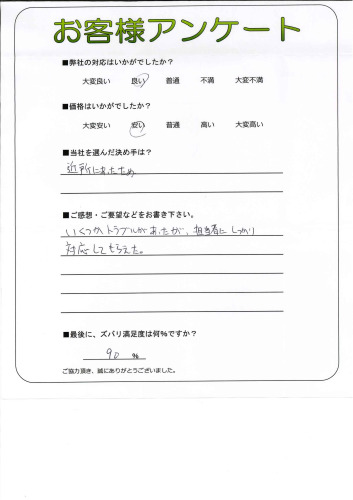 お客様アンケート
■弊社の対応はいかがでしたか?
大変良い 良い 普通 不満 大変不満
■価格はいかがでしたか?
大変安い 安い 普通 高い 大変高い
■当社を選んだ決め手は?
近所にあったため
■ご感想・ご要望などをお書き下さい。
いくつかトラブルがあったが、担当者にしっかり
対応してもらえた。
■最後に、ズバリ満足度は何%ですか?
90 %
ご協力頂き、誠にありがとうございました。